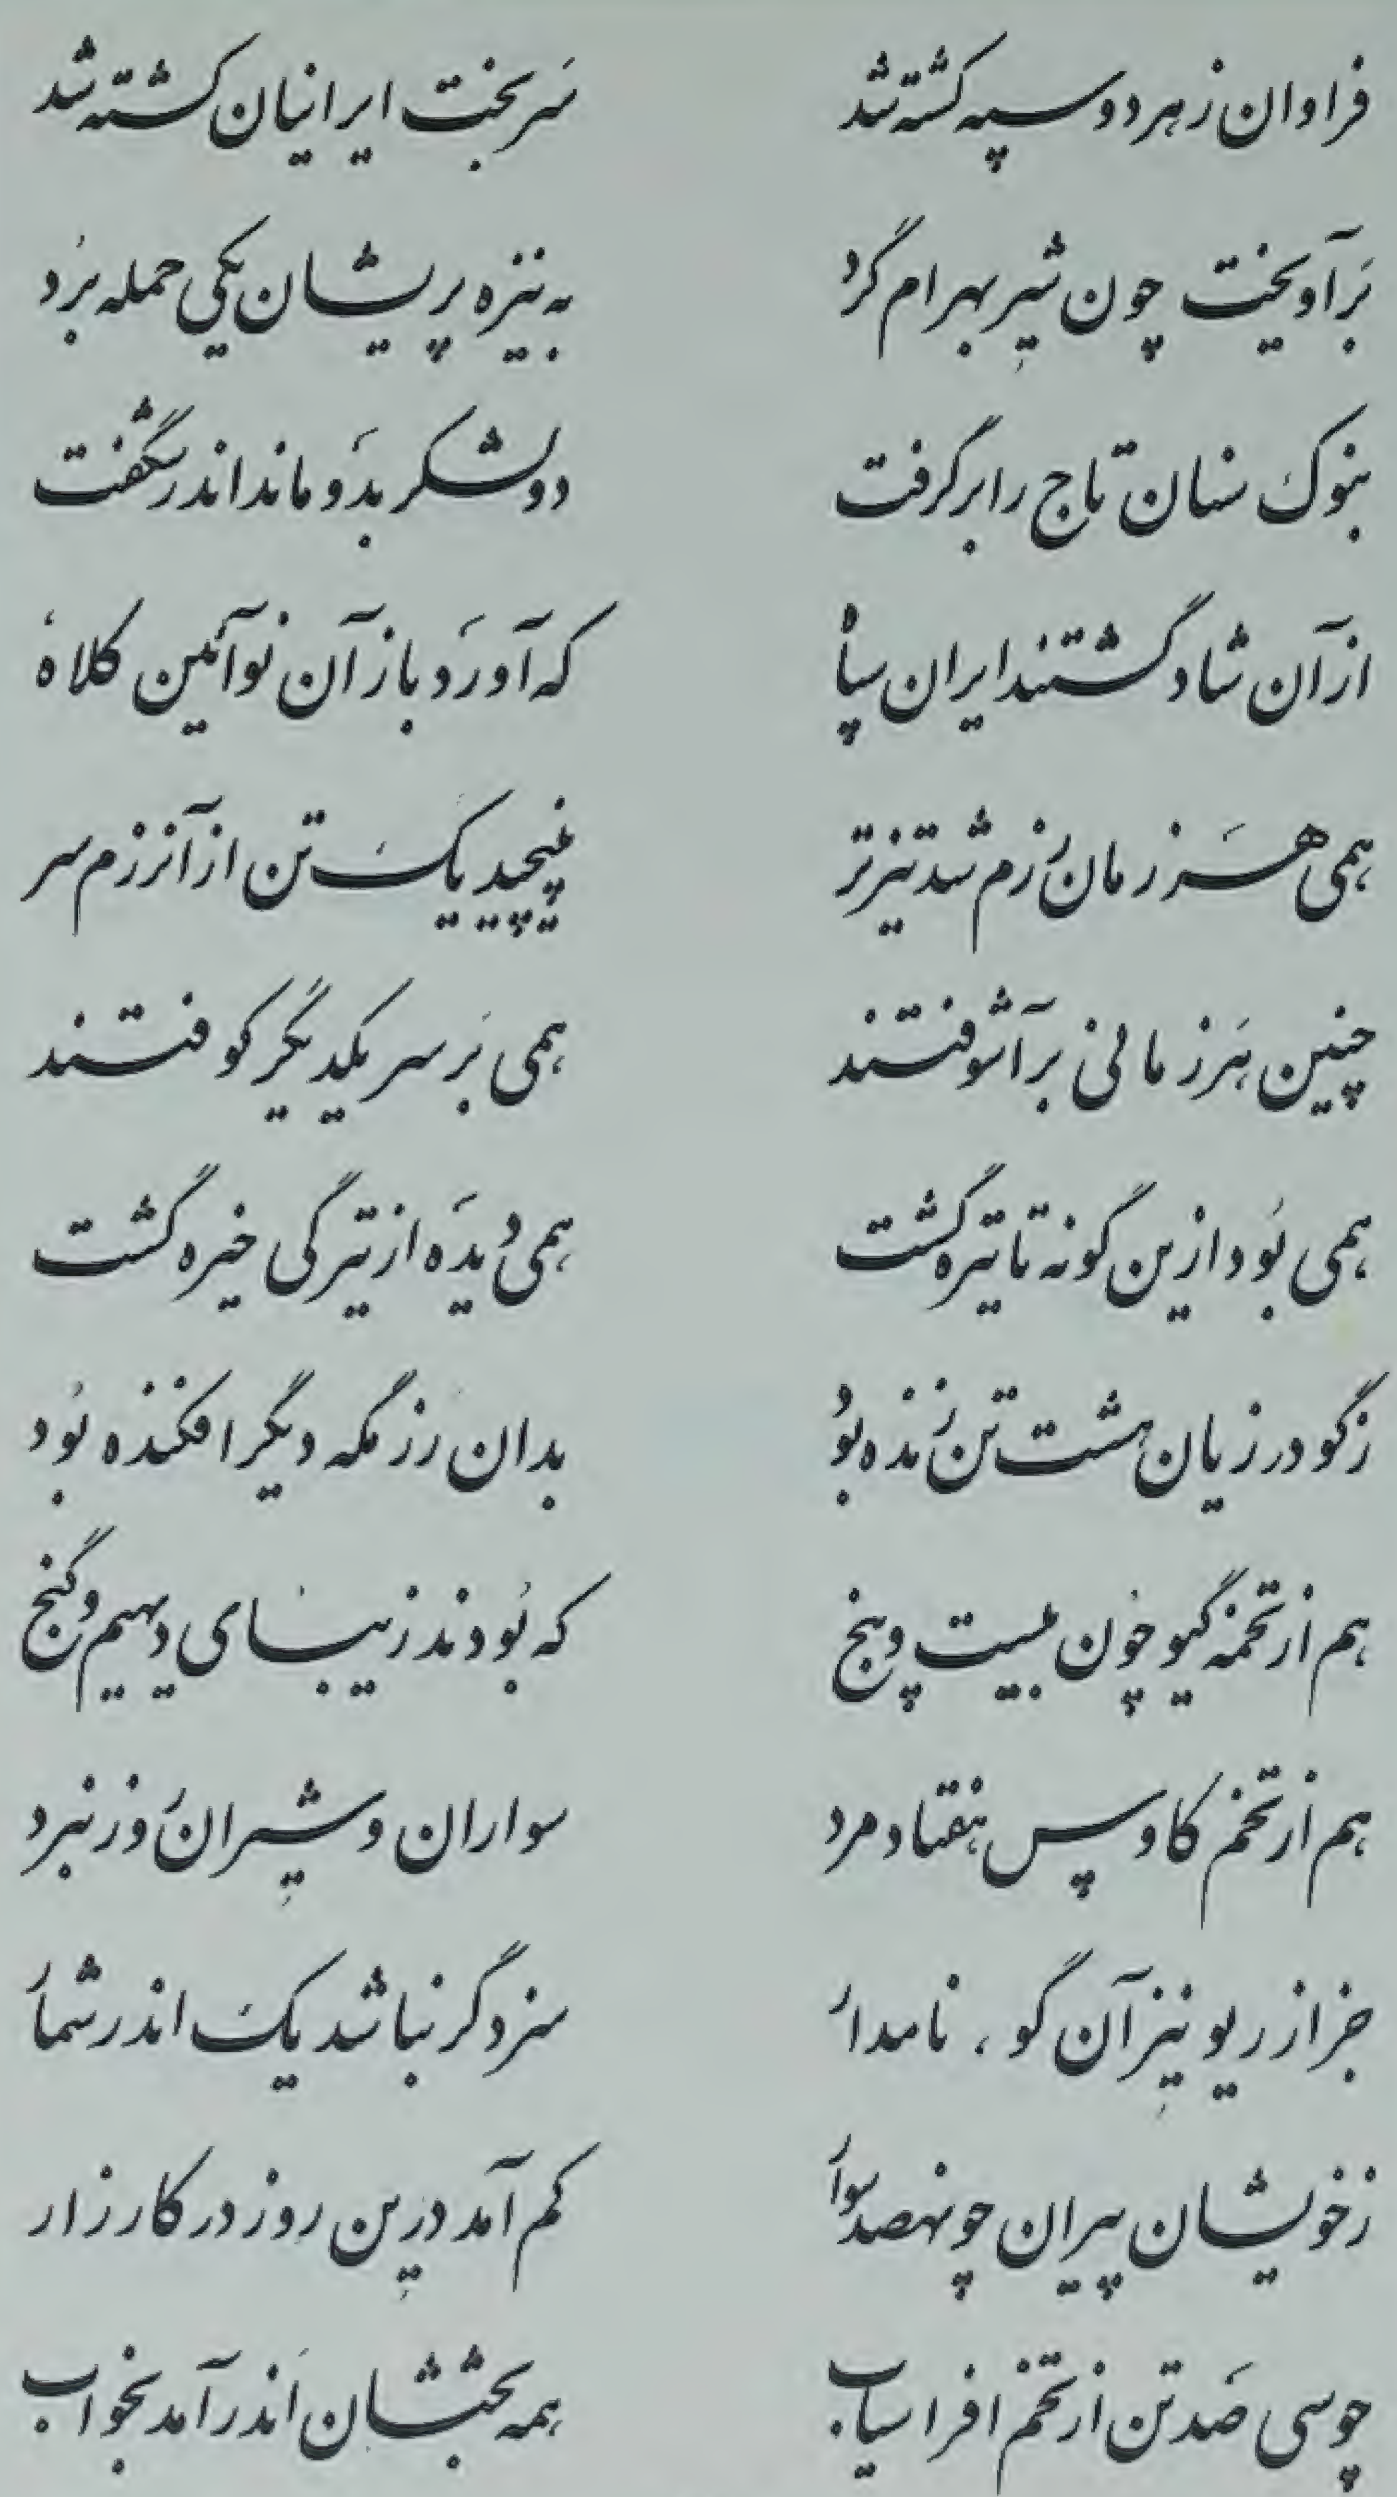 فراوان ز هر دو سپه کشته شد سر بخت ایرانیان کشته شد
برآویخت چون شیر بهرام گرد به نیزه بریشان یکی حمله برد
بنوک سنان تاج را برگرفت دو لشکر بدو ماند اندر شگفت
از آن شاد گشتند ایران سپاه که آورد باز آن نوآئین کلاه
همی هر زمان رزم شد تیزتر نپیچید یک تن از آن رزم سر
چنین هر زمانی برآشوفتند همی بر سر یکدیگر کوفتند
همی بود ازین گونه تا تیره گشت همی دیده از تیرگی خیره گشت
ز گودرزیان هشت تن زنده بود بدان رزمگه دیگر افکنده بود
هم از تخمه گیو چون بیست و پنج که بودند زیبای دیهیم و گنج
هم از تخم کاوس هفتاد مرد سواران و شیران روز نبرد
جز از ریو نیز آن گو، نامدار سزد گر نباشد یک اندر شمار
ز خویشان پیران چو نهصد سوار کم آمد درین روز در کارزار
چو سی صد تن از تخم افراسیاب همه بختشان اندر آمد بخواب